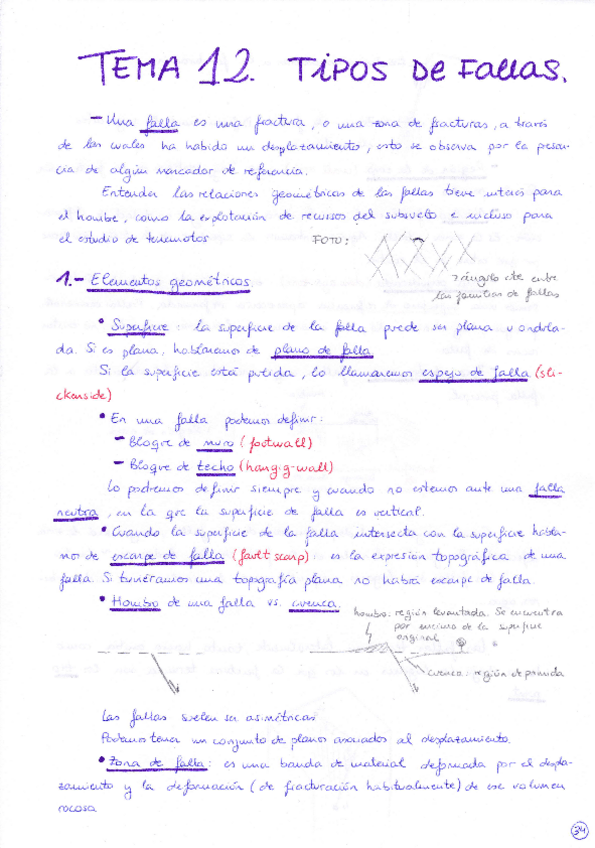 TEMA 12. TIPOS DE FALLAS.
— Una falla es una fractura, o una zona de fracturas, a través
de las cuales ha habido un desplazamiento, esto se observa por la presen-
cia de algún marcador de referencia.
Entender las relaciones geométricas de las fallas tiene interés para
el hombe, como la explotación de recursos del subsuelo e incluso para
el estudio de terremotos
FOTO:
triángulo cte entre
las familias de fallas
1.- Elementos geométricos.
• Superficie: la superficie de la falla puede ser plana u ondula-
da. Si es plana, hablaremos de plano de falla
Si la superficie está pulida, lo llamaremos espejo de falla (sli-
ckenside)
• En una falla podemos definir:
— Bloque de muro (footwall)
— Bloque de techo (hangig-wall)
Lo podremos definir siempre y cuando no estemos ante una falla
neutra, en la que la superficie de falla es vertical.
• Cuando la superficie de la falla intersecta con la superficie habla-
mos de escarpe de falla (fault scarp): es la expresión topográfica de una
falla. Si tuviéramos una topografía plana no habrá escarpe de falla.
• Hombro de una falla vs. cuenca.
hombro: región levantada. Se encuentra
por encima de la superficie
original
cuenca: región deprimida
Las fallas suelen ser asimétricas
Podemos tener un conjunto de planos asociados al desplazamiento.
• Zona de falla: es una banda de material deformada por el despla-
zamiento y la deformación (de fracturación habitualmente) de ese volumen
rocoso
34